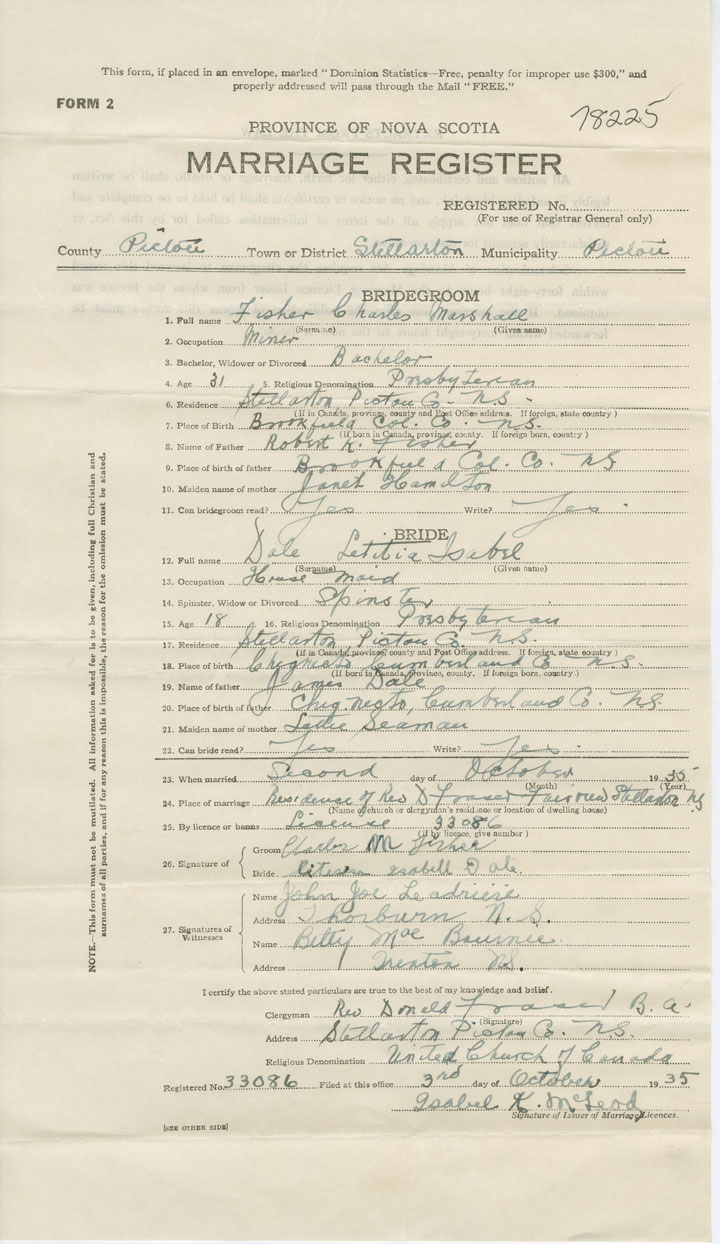 This form, if placed in an envelope, marked "Dominion Statistics—Free, penalty for improper use $300," and
properly addressed will pass through the Mail "FREE."
FORM 2
78225
PROVINCE OF NOVA SCOTIA
MARRIAGE REGISTER
REGISTERED No.
(For use of Registrar General only)
County Pictou Town or District Stellarton Municipality Pictou
BRIDEGROOM
1. Full name Fisher Charles Marshall
(Surname) (Given name)
2. Occupation Miner
3. Bachelor, Widower or Divorced Bachelor
4. Age 31 5. Religious Denomination Presbyterian
6. Residence Stellarton, Pictou Co. N.S.
(If in Canada, province, county and Post Office address. If foreign, state country)
7. Place of Birth Brookfield Col. Co. N.S.
(If born in Canada, province, county. If foreign born, country)
8. Name of Father Robert K. Fisher
9. Place of birth of father Brookfield Col. Co. NS
10. Maiden name of mother Janet Hamilton
11. Can bridegroom read? Yes Write? Yes
BRIDE
12. Full name Dale Letitia Isabel
(Surname) (Given name)
13. Occupation House maid
14. Spinster, Widow or Divorced Spinster
15. Age 18 16. Religious Denomination Presbyterian
17. Residence Stellarton Pictou Co. N.S.
(If in Canada, province, county and Post Office address. If foreign, state country)
18. Place of birth Chignecto Cumberland Co N.S.
(If born in Canada, province, county. If foreign born, country.)
19. Name of father James Dale
20. Place of birth of father Chignecto, Cumberland Co. N.S.
21. Maiden name of mother Seaman
22. Can bride read? Yes Write? Yes
23. When married Second day of October 1935
(Month) (Year)
24. Place of marriage Residence of Rev D Fraser Fairview Stellarton NS
(Name of church or clergyman's residence or location of dwelling house)
25. By licence or banns Licence 33086
(If by licence, give number)
26. Signature of
Groom Charles M Fisher
Bride isabell Dale
27. Signatures of Witnesses
Name John Joe
Address Thorburn N.S.
Name Betty Mae
Address Trenton NS.
I certify the above stated particulars are true to the best of my knowledge and belief.
Clergyman Rev Donald Fraser B.A.
(Signature)
Address Stellarton Pictou Co. N.S.
Religious Denomination United Church of Canada
Registered No. 33086 Filed at this office 3rd day of October 1935
Isabel K. McLeod
Signature of Issuer of Marriage Licences.
[SEE OTHER SIDE]
NOTE.—This form must not be mutilated. All information asked for is to be given, including full Christian and
surnames of all parties, and if for any reason this is impossible, the reason for the omission must be stated.